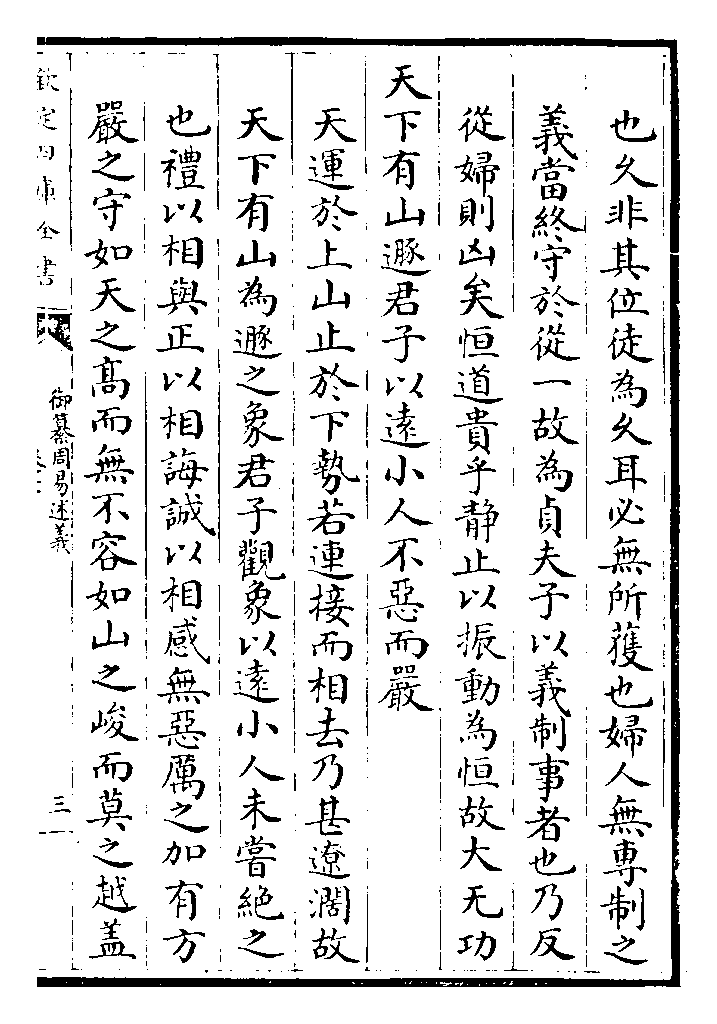 也久非其位徒為久耳必無所獲也婦人無專制之
義當終守於從一故為貞夫子以義制事者也乃反
從婦則凶矣恒道貴乎静止以振動為恒故大无功
天下有山遯君子以逺小人不惡而嚴
天運於上山止於下勢若連接而相去乃甚遼濶故
天下有山為遯之象君子觀象以逺小人未嘗絶之
也禮以相與正以相誨誠以相感無惡厲之加有方
嚴之守如天之髙而無不容如山之峻而莫之越盖
欽定四庫全書
御纂周易述義
三